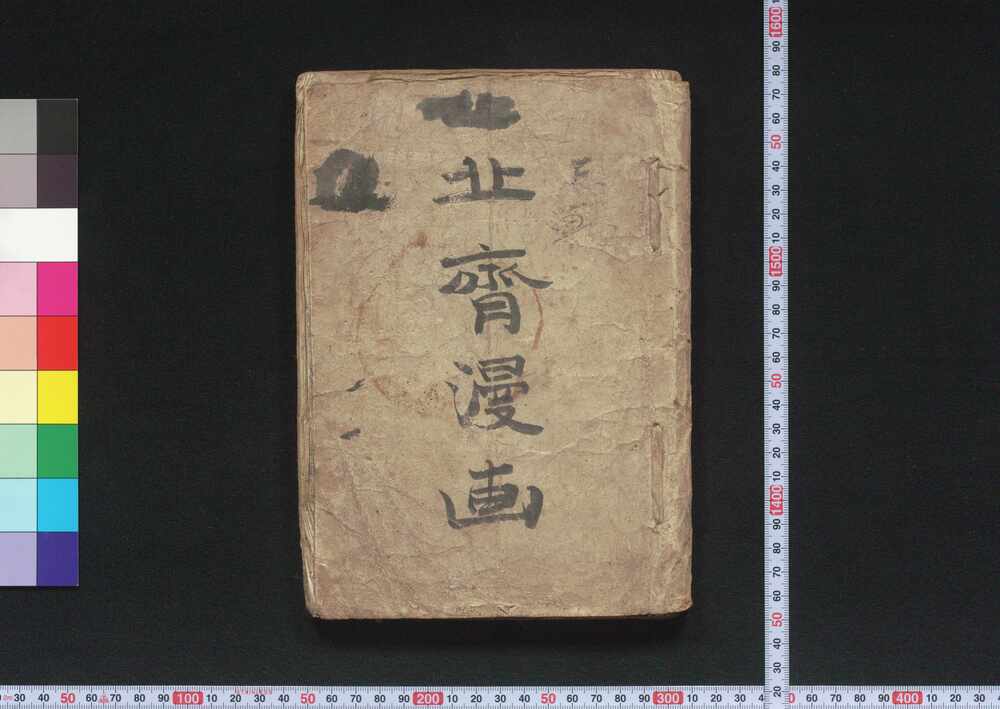 北齊漫画
1600 90 80 70 60 50 40 30 20 10 1500 90 80 70 60 50 40 30 20 10 1400 90 80 70 60 50 40 30 20
30 40 50 60 70 80 90 100 10 20 30 40 50 60 70 80 90 200 10 20 30 40 50 60 70 80 90 300 10 20 30 60 70 80 90 400 10 20 30